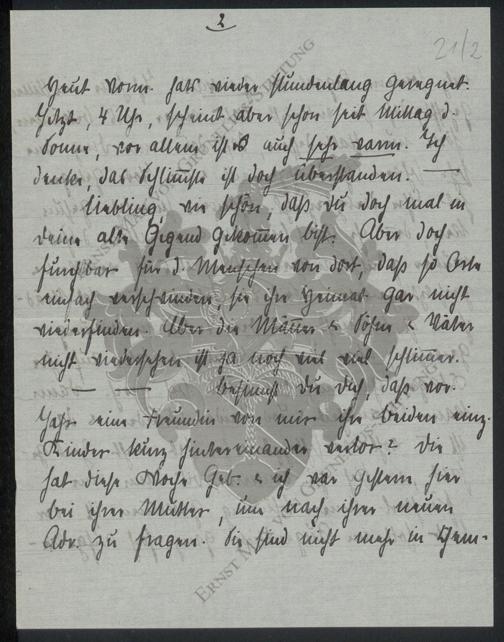 2
21/2
Heut vorm. hats wieder stundenlang geregnet.
Jetzt, 4 Uhr, scheint aber schon seit Mittag d.
Sonne, vor allem ist es auch sehr warm. Ich
denke, das Schlimmste ist doch überstanden. —
Liebling, wie schön, daß du doch mal in
deine alte Gegend gekommen bist. Aber doch
furchtbar für d. Menschen von dort, daß so Orte
einfach verschwinden, sie ihre Heimat gar nicht
wiederfinden. Aber die Männer & Söhne & Väter
nicht wiedersehen ist ja noch viel viel schlimmer.
— — Du Dich, daß vor.
Jahr eine Freundin von mir ihre beiden einz.
Kinder kurz hintereinander verlor? Die
hat diese Woche Geb. & ich war gestern hier
bei ihrer Mutter, um nach ihrer neuen
Adr. zu fragen. Sie sind nicht mehr in Chem-
ERNST
STIFTUNG